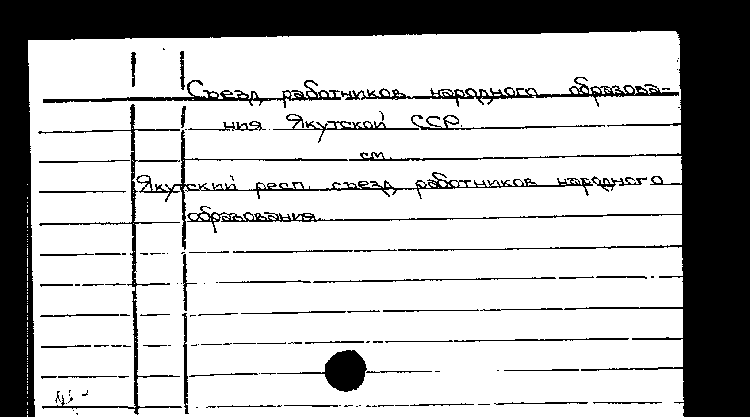 Съезд работников народного образова-
ния Якутской ССР
см.
Якутский респ. съезд работников народного
образования.